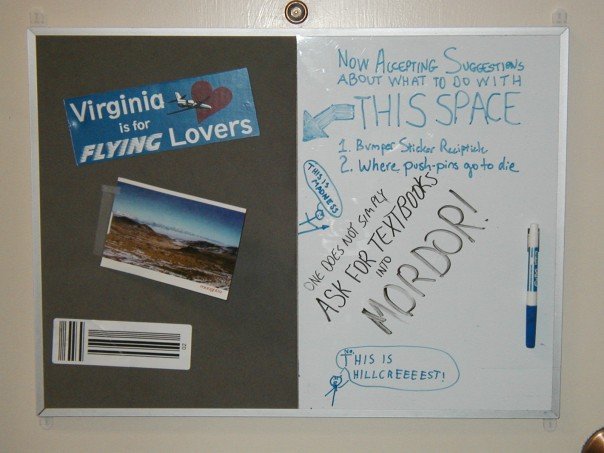 Virginia
is for
FLYING Lovers
02
NOW ACCEPTING SUGGESTIONS
ABOUT WHAT TO DO WITH
THIS SPACE
1. Bumper Sticker Recipticle
2. Where push-pins go to die
THIS IS
MADNESS
ONE DOES NOT SIMPLY
ASK FOR TEXTBOOKS
INTO
MORDOR!
No,
THIS IS
HILLCREEEEST!